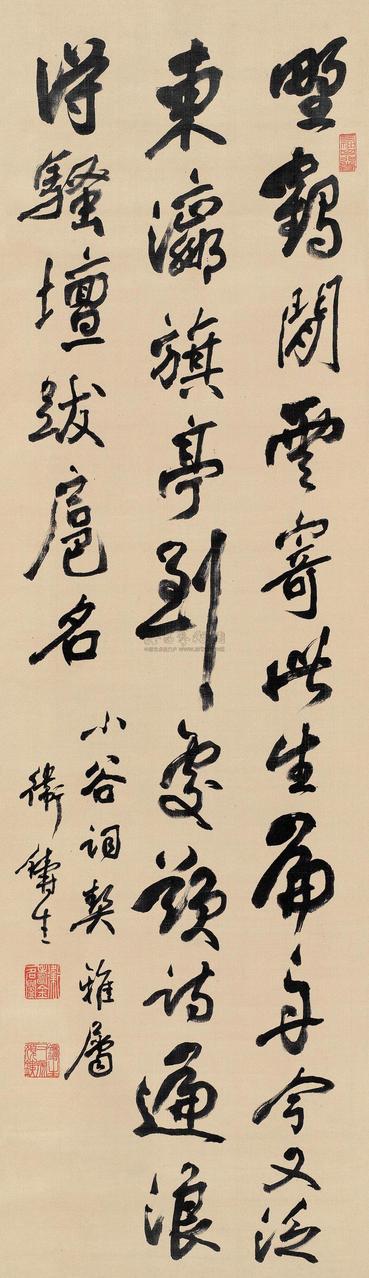 野鶴閒雲寄此生扁舟今又泛
東瀛旗亭到處題詩遍浪
得騷壇跋扈名
小谷詞契雅屬
衛鑄生